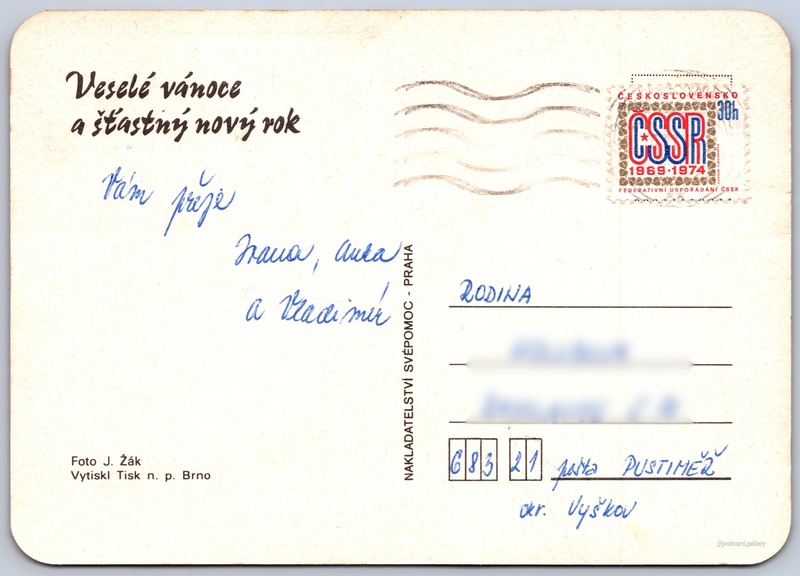 Veselé vánoce
a šťastný nový rok
Vám přeje
Ivana,
a Vladimír
Foto J. Žák
Vytiskl Tisk n. p. Brno
NAKLADATELSTVÍ SVÉPOMOC - PRAHA
ČESKOSLOVENSKO
30h
ČSSR
1969·1974
FEDERATIVNÍ USPOŘÁDÁNÍ ČSSR
RODINA
683 21 pošta PUSTIMĚŘ
okr. Vyškov